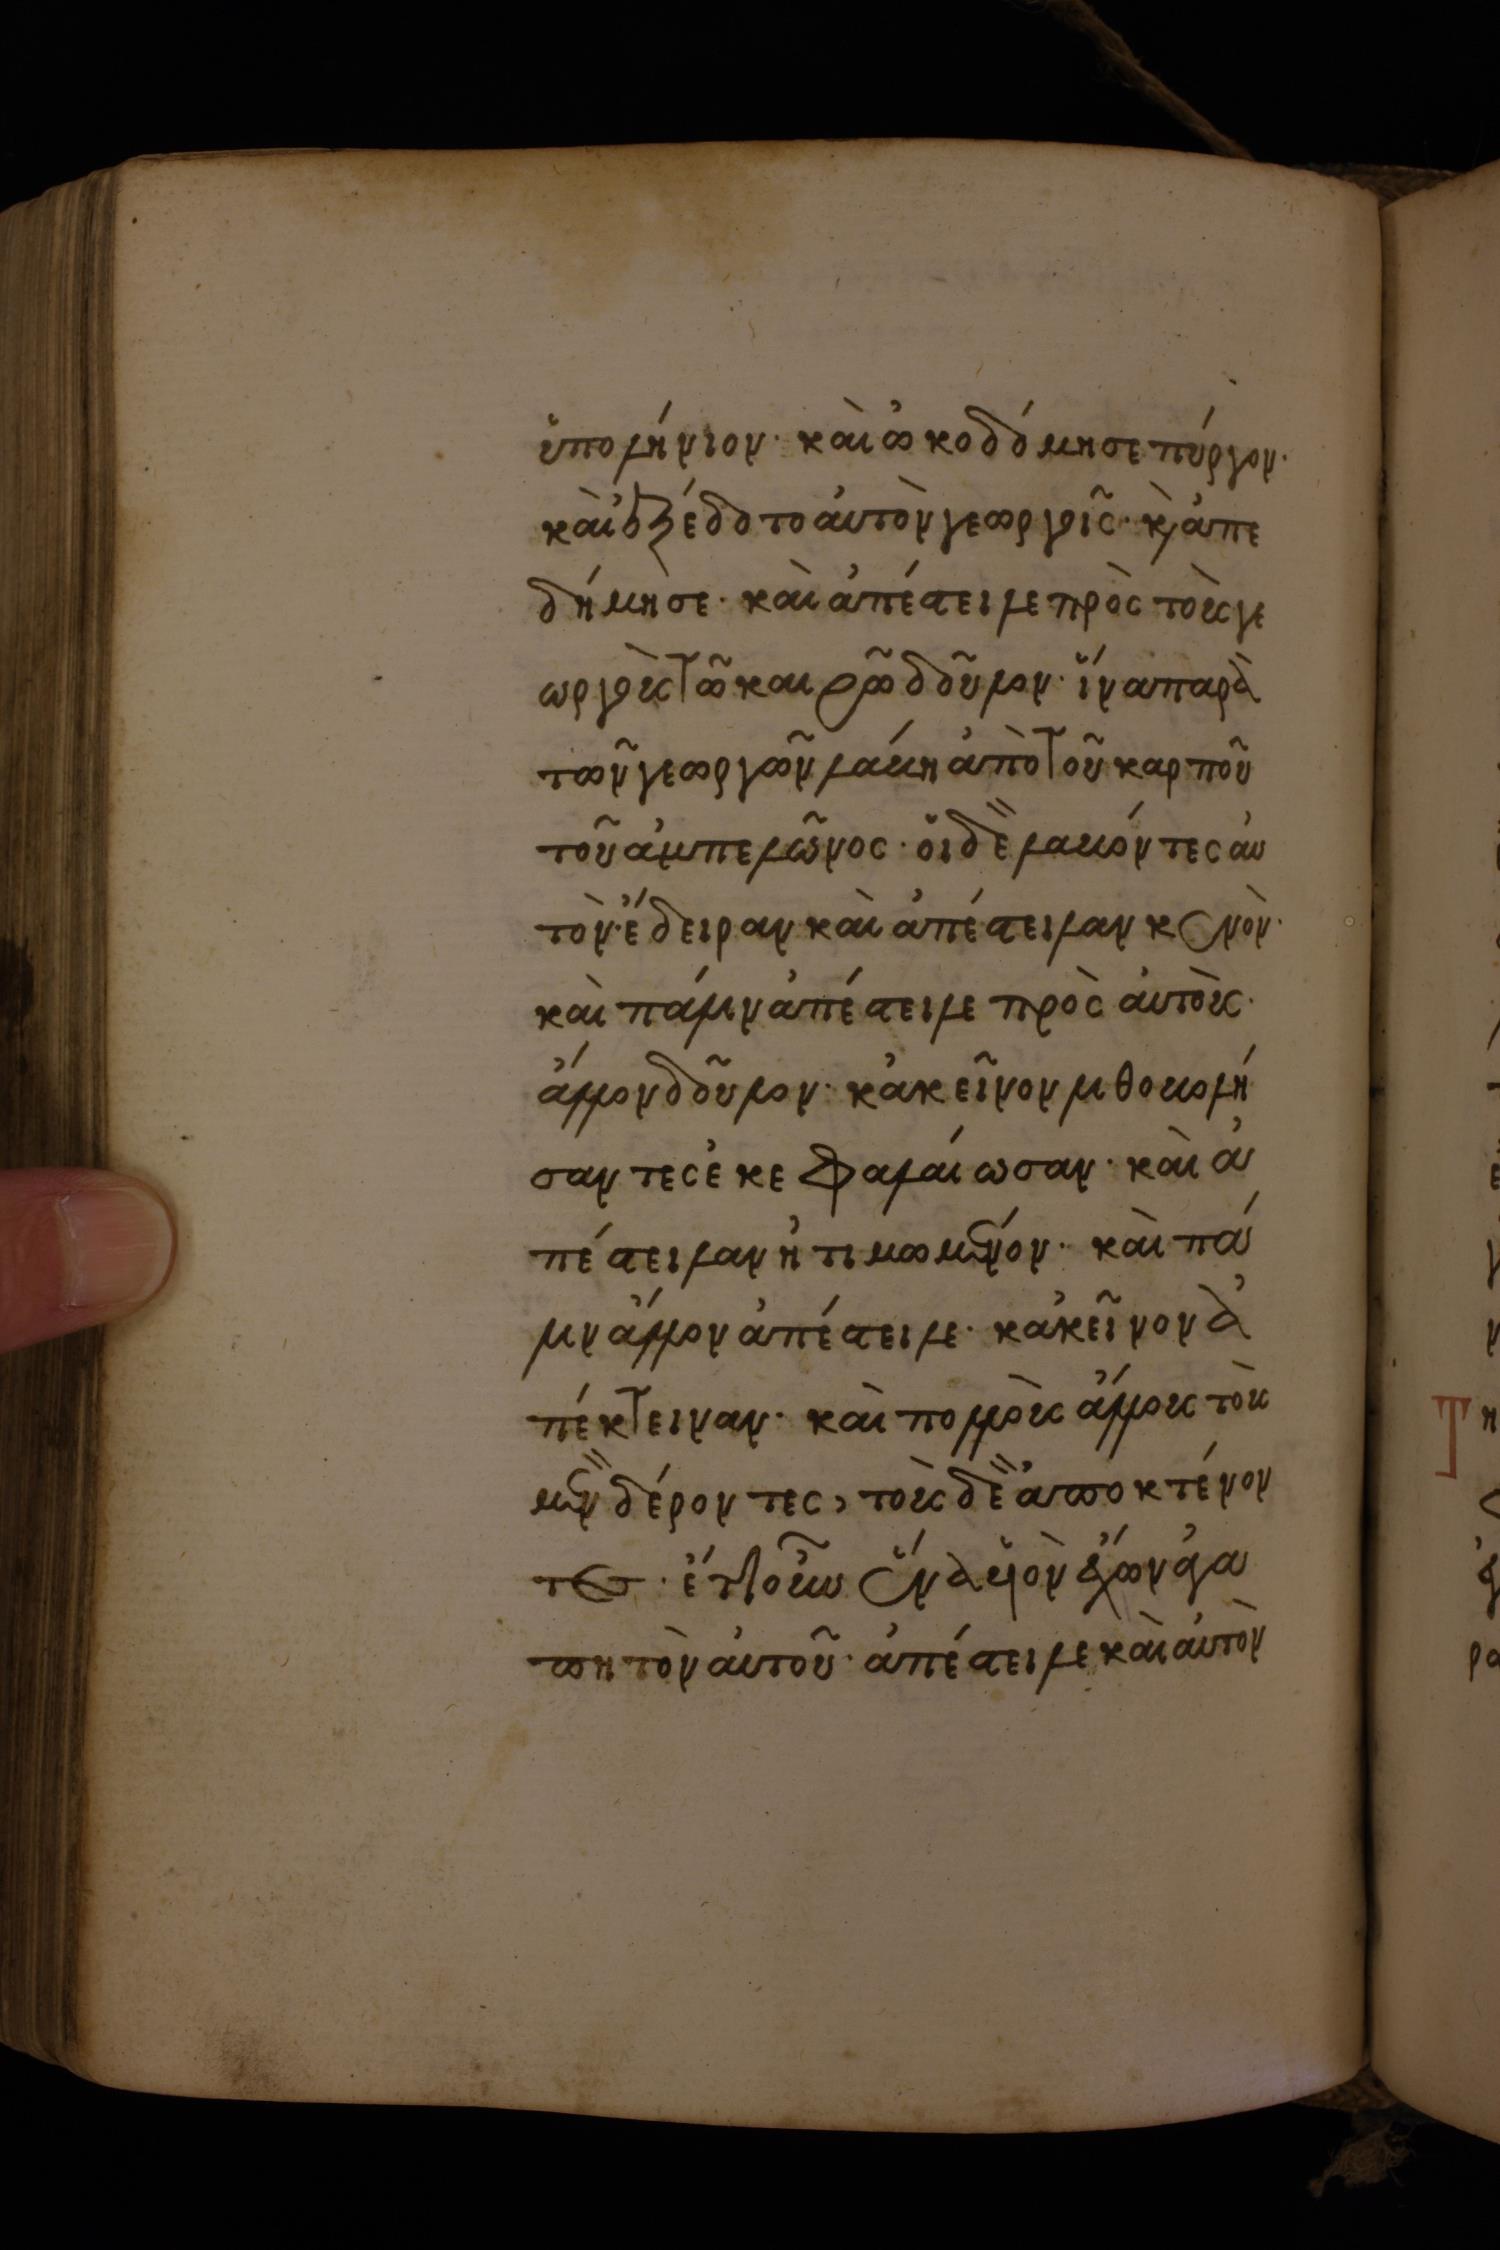 ὑπολήνιον· καὶ ὠκοδόμησε πύργον·
καὶ ἐξέδοτο αὐτὸν γεωργοῖς· κ̀ ἀπε
δήμησε· καὶ ἀπέστειλε πρὸς τοὺς γε
ωργοὺς τῶ καιρῶ δοῦλον· ἵνα παρὰ
τῶν γεωργῶν λάβη ἀπὸ τοῦ καρποῦ
τοῦ ἀμπελῶνος· οἱ δὲ λαβόντες αὐ
τὸν ἔδειραν καὶ ἀπέστειλαν κενὸν·
καὶ πάλιν ἀπέστειλε πρὸς αὐτοὺς·
ἄλλον δοῦλον· κἀκεῖνον λιθοβολή
σαντες ἐκεφαλαίωσαν· καὶ ἀ
πέστειλαν ἠτιμωμένον· καὶ πά
λιν ἄλλον ἀπέστειλε· κἀκεῖνον ἀ
πέκτειναν· καὶ πολλοὺς ἄλλους τοὺς
μὲν δέροντες, τοὺς δὲ ἀποκτένον
τες· ἔτι οὖν ἕνα υἱὸν ἔχων ἀγα
πητὸν αὐτοῦ· ἀπέστειλε καὶ αὐτὸν
Τ